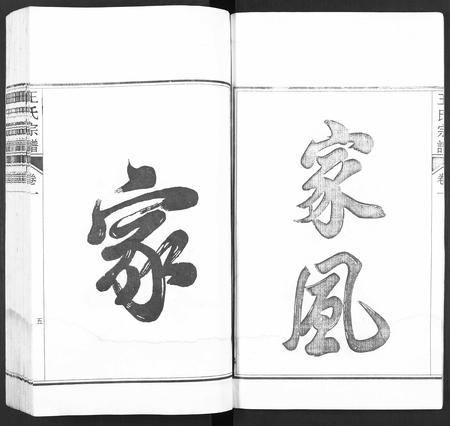 王氏宗譜
卷一
家風
王氏宗譜
卷一
五
家